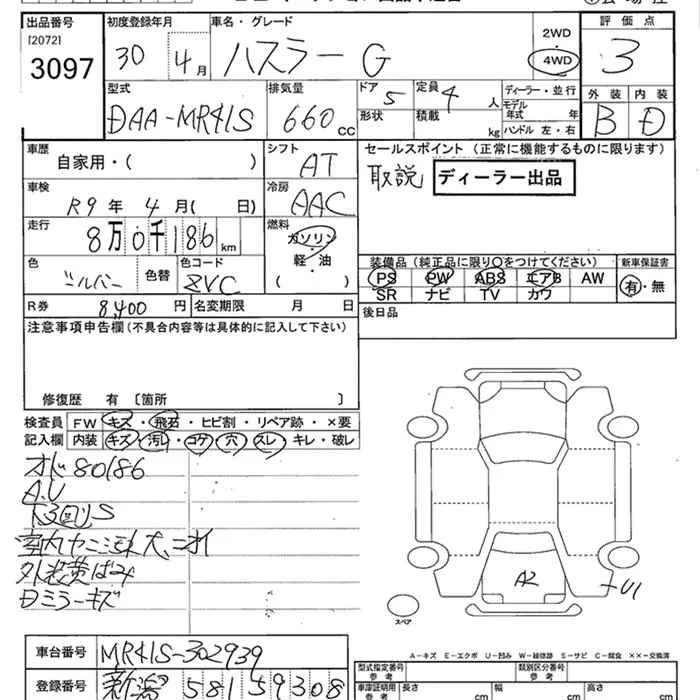 出品番号
[2072]
3097
初度登録年月
30 4月
車名・グレード
ハスラー G
2WD
4WD
評価点
3
型式
DAA-MR41S
排気量
660 cc
ドア 5
形状
定員 4 人
積載 kg
ディーラー・並行
モデル年式 年
ハンドル 左・右
外装 内装
B D
車歴
自家用・( )
シフト
AT
車検
R9年 4月( 日)
冷房
AAC
走行
8万0千186km
燃料
ガソリン
軽・油
( )
色
シルバー
色替
色コード
ZVC
R券
8,400 円
名変期限 月 日
セールスポイント (正常に機能するものに限ります)
取説 ディーラー出品
装備品 (純正品に限り○をつけてください)
PS PW ABS エアB AW
SR ナビ TV カワ
新車保証書
有・無
後日品
注意事項申告欄 (不具合内容等は具体的に記入して下さい)
修復歴 有 〔箇所 〕
検査員記入欄
FW キズ・飛石・ヒビ割・リペア跡・×要
内装 キズ・汚レ・コゲ・穴・スレ・キレ・破レ
オド80186
A.U
下回りS
室内ヤニ汚れ大、ニオイ
外装黄ばみ
Dミラーキズ
A2
U1
スペア
A-キズ E-エクボ U-凹み W-補修跡 S-サビ C-腐食 ××-交換済
車台番号
MR41S-302939
登録番号
新潟 581 59308
型式指定番号 参考
類別区分番号 参考
車庫証明用 参考
長さ cm
幅 cm
高さ cm